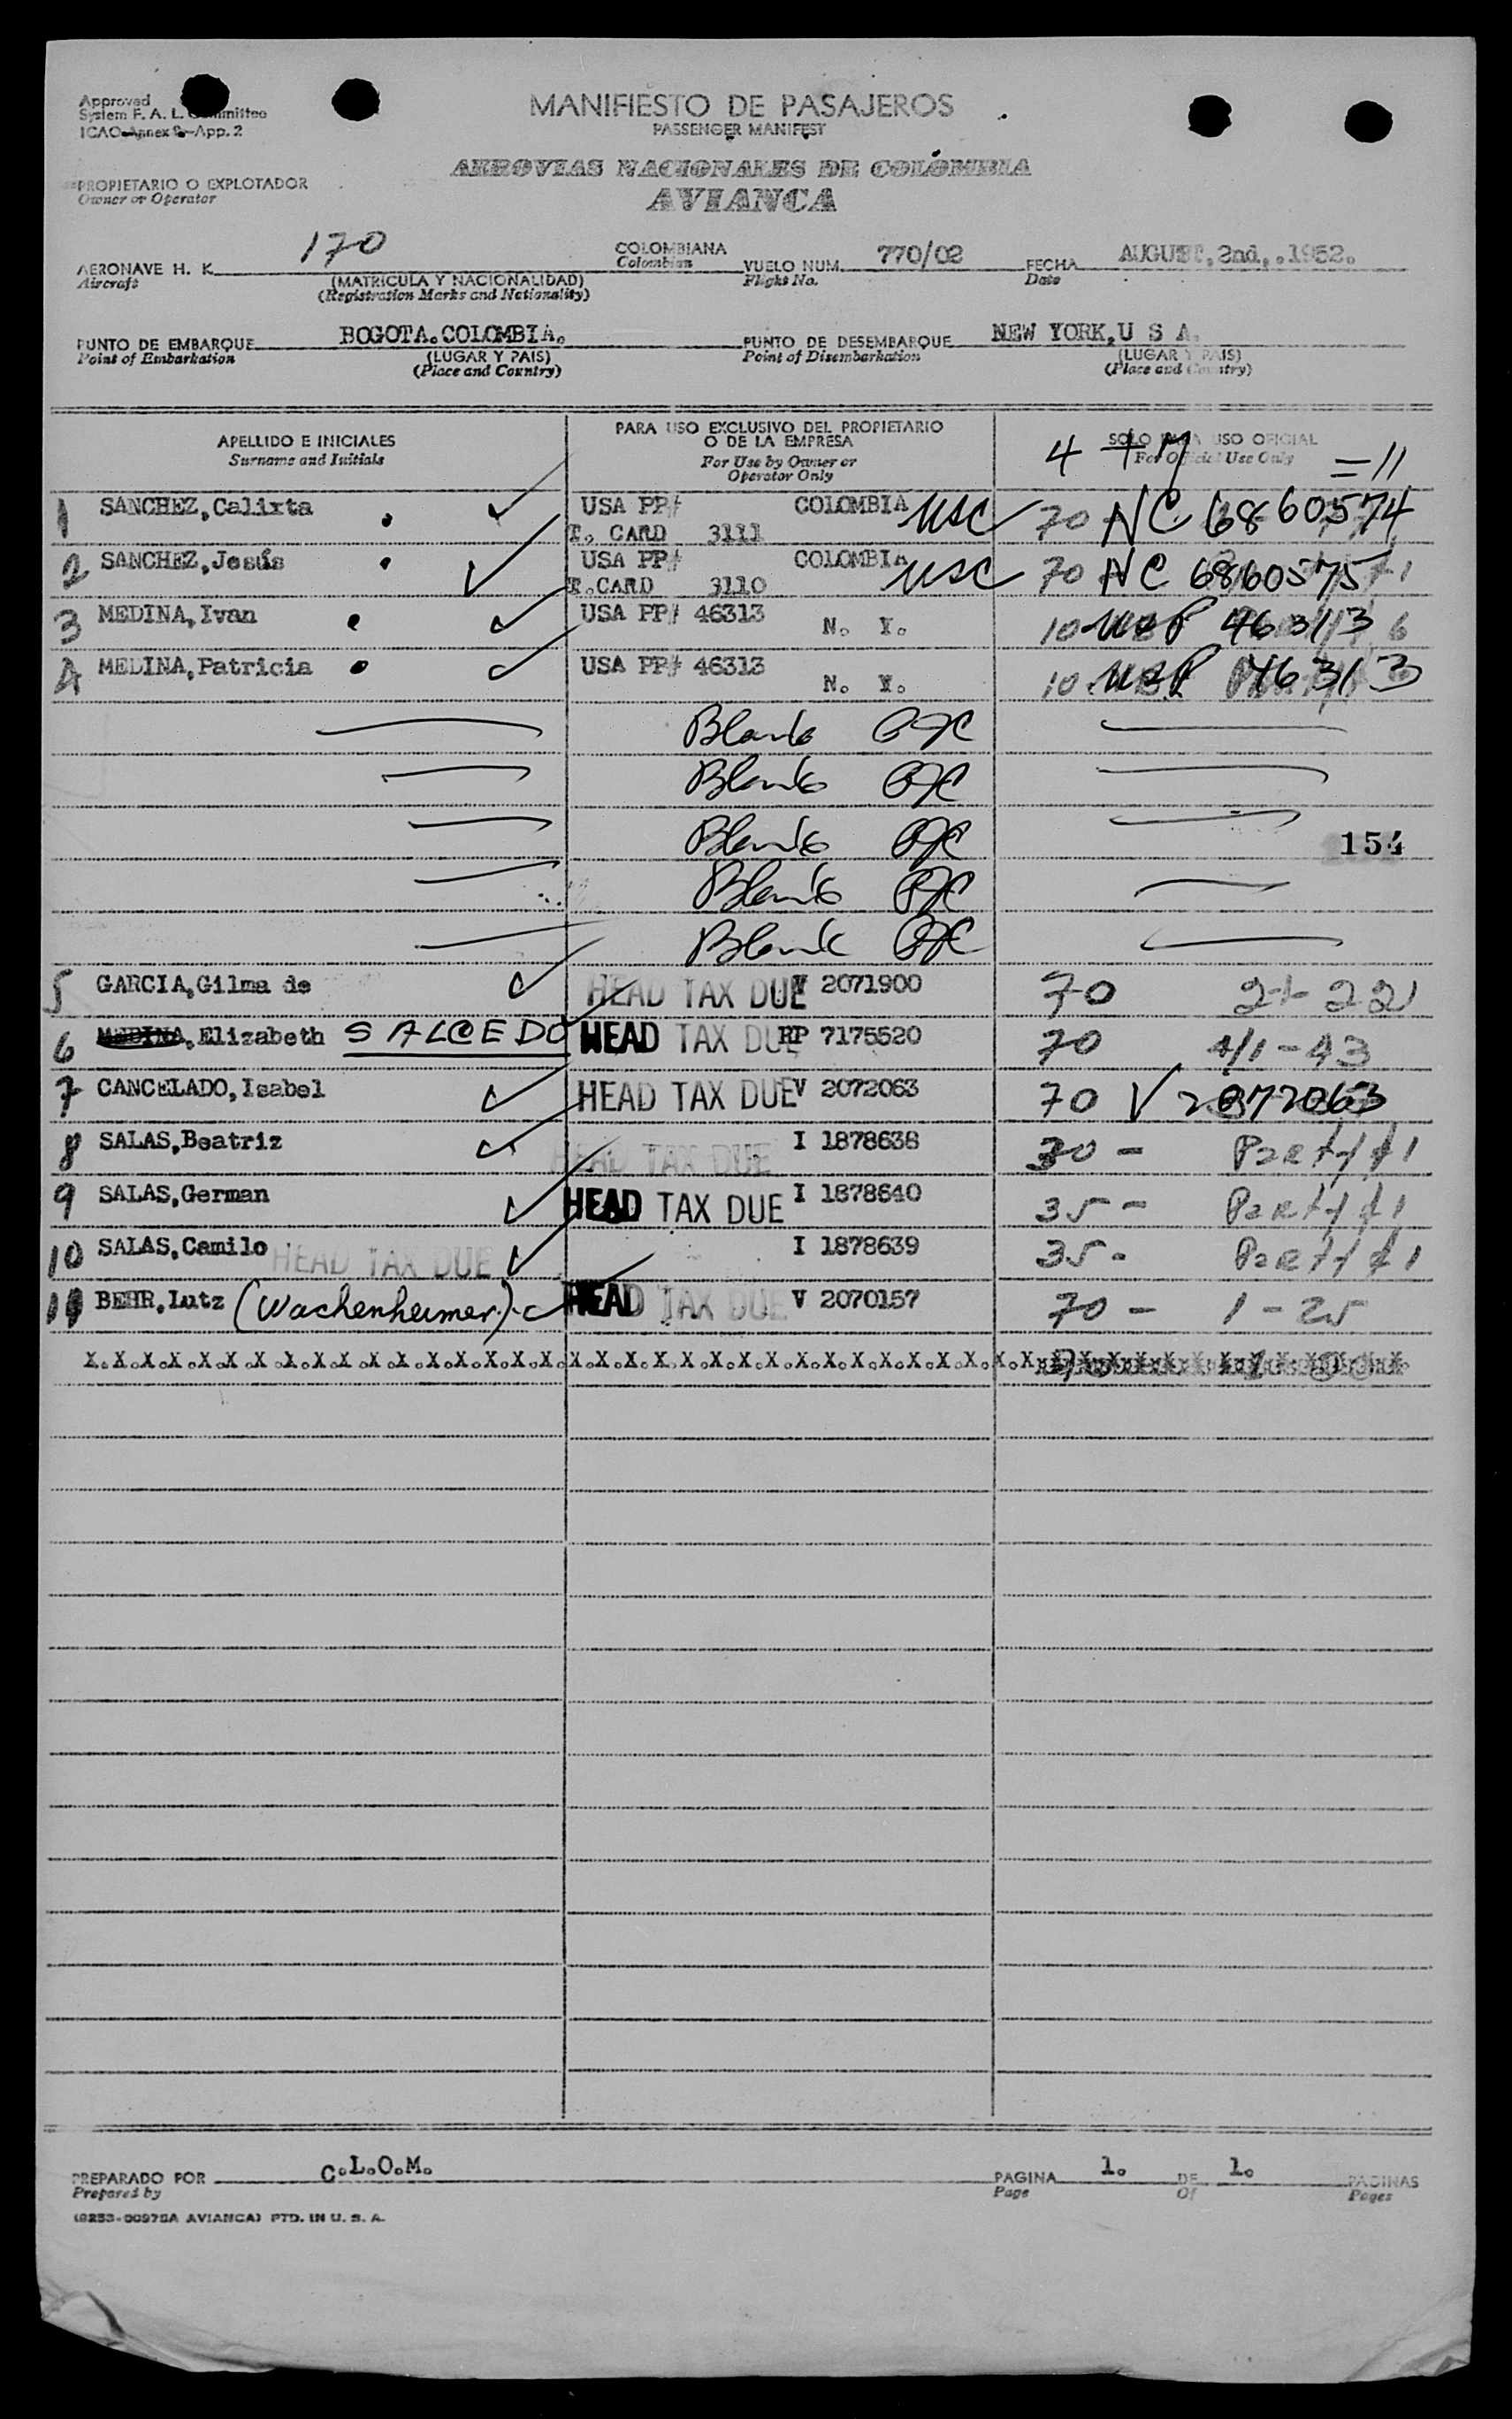 Approved
System F. A. L. Committee
ICAO Annex 9-App. 2
MANIFIESTO DE PASAJEROS
PASSENGER MANIFEST
AEROVIAS NACIONALES DE COLOMBIA
AVIANCA
PROPIETARIO O EXPLOTADOR
Owner or Operator
AERONAVE H. K. 170 COLOMBIANA VUELO NUM. 770/02 FECHA AUGUST, 2nd,.1952.
Aircraft (MATRICULA Y NACIONALIDAD) Colombian Flight No. Date
(Registration Marks and Nationality)
PUNTO DE EMBARQUE BOGOTA.COLOMBIA. PUNTO DE DESEMBARQUE NEW YORK,U S A.
Point of Embarkation (LUGAR Y PAIS) Point of Disembarkation (LUGAR Y PAIS)
(Place and Country) (Place and Country)
APELLIDO E INICIALES PARA USO EXCLUSIVO DEL PROPIETARIO O DE LA EMPRESA SOLO PARA USO OFICIAL
Surname and Initials For Use by Owner or Operator Only For Official Use Only
4 + 7 = 11
1 SANCHEZ,Calixta USA PP# COLOMBIA USC 70 NC 6860574
T. CARD 3111
2 SANCHEZ,Jesús USA PP# COLOMBIA USC 70 NC 6860575
T.CARD 3110
3 MEDINA,Ivan USA PP# 46313 N. Y. 10 USP 46313
4 MEDINA,Patricia USA PP# 46313 N. Y. 10 USP 46313
Blank
Blank
Blank
154
Blank
Blank
5 GARCIA,Gilma de HEAD TAX DUE V 2071900 70 21-221
6 MEDINA,Elizabeth SALCEDO HEAD TAX DUE RP 7175520 70 4/1-43
7 CANCELADO,Isabel HEAD TAX DUE V 2072063 70 V 2072063
8 SALAS,Beatriz HEAD TAX DUE I 1878638 30 - Party #1
9 SALAS,German HEAD TAX DUE I 1878640 35 - Party #1
10 SALAS,Camilo HEAD TAX DUE I 1878639 35 - Party #1
11 BEHR,Lutz (Wachenheimer) HEAD TAX DUE V 2070157 70 - 1-25
X.X.X.X.X.X.X.X.X.X.X.X.X.X.X.X.X.X.X.X.X.X.X.X.X.X.X.X.X.X.X.X.X.X
PREPARADO POR C.L.O.M. PAGINA 1. DE 1. PAGINAS
Prepared by Page Of Pages
(8253-00975A AVIANCA) PTD. IN U. S. A.